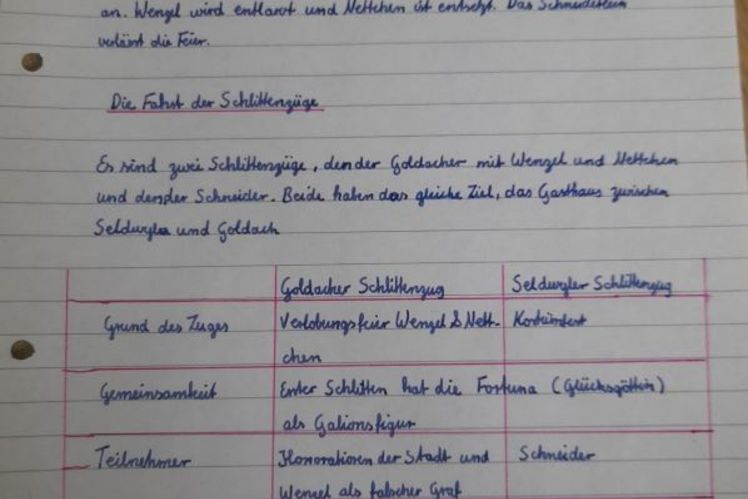 an. Wenzel wird entlarvt und Nettchen ist entsetzt. Das Schneiderlein
verlässt die Feier.
Die Fahrt der Schlittenzüge
Es sind zwei Schlittenzüge, den der Goldacher mit Wenzel und Nettchen
und den der Schneider. Beide haben das gleiche Ziel, das Gasthaus zwischen
Seldwyla und Goldach
Goldacher Schlittenzug Seldwyler Schlittenzug
Grund des Zuges Verlobungsfeier Wenzel & Nett- Kostümfest
chen
Gemeinsamkeit Erster Schlitten hat die Fortuna (Glücksgöttin)
als Galionsfigur
Teilnehmer Honoratioren der Stadt und Schneider
Wenzel als falscher Graf